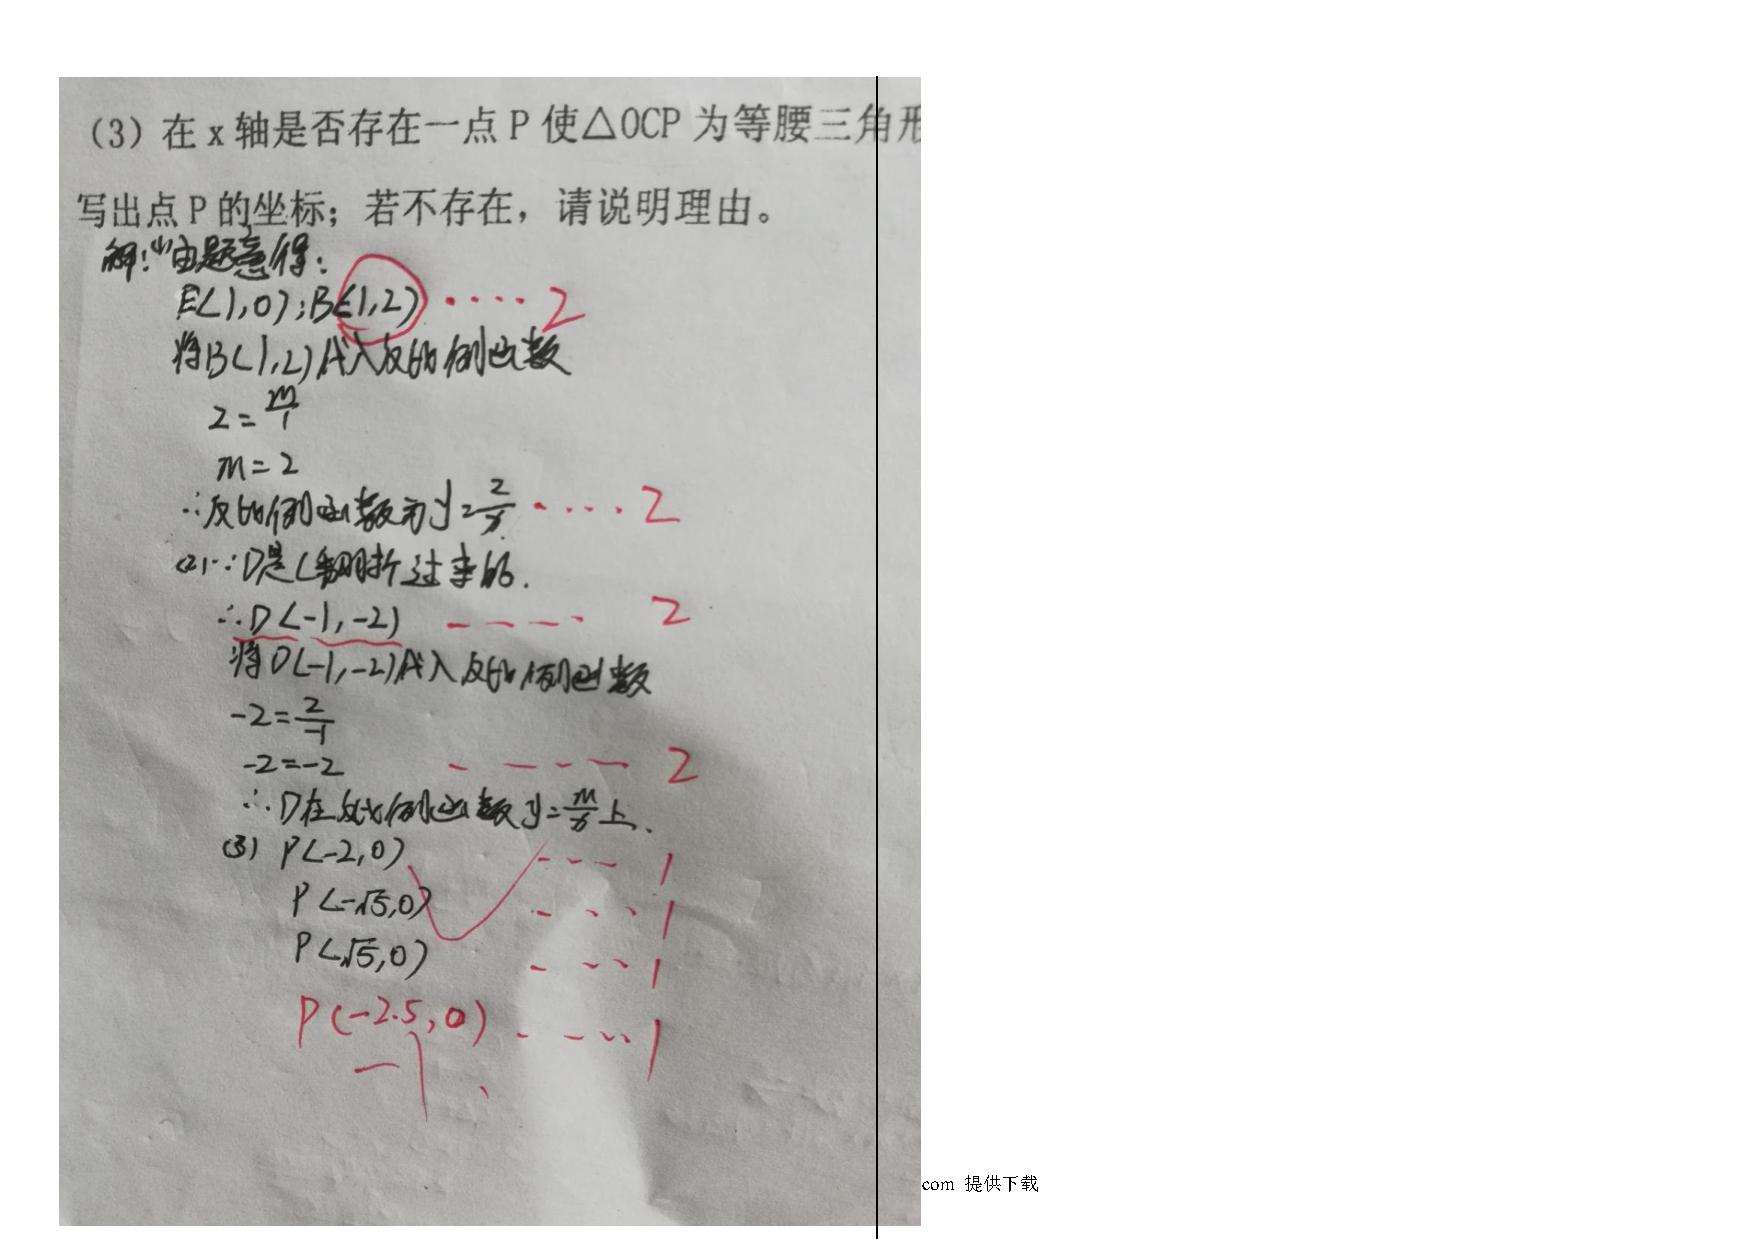 （3）在 x 轴是否存在一点 P 使△OCP 为等腰三角形
写出点 P 的坐标；若不存在，请说明理由。
解:(1)由题意得:
E(1,0);B(1,2) ···· 2
将B(1,2)代入反比例函数
2=m/1
m=2
∴反比例函数为y=2/x ···· 2
(2)∵D是C翻折过来的.
∴D(-1,-2) ---- 2
将D(-1,-2)代入反比例函数
-2=2/-1
-2=-2 ---- 2
∴D在反比例函数y=m/x上.
(3) P(-2,0) --- 1
P(-√5,0) ---- 1
P(√5,0) ---- 1
P(-2.5,0) ---- 1
com 提供下载